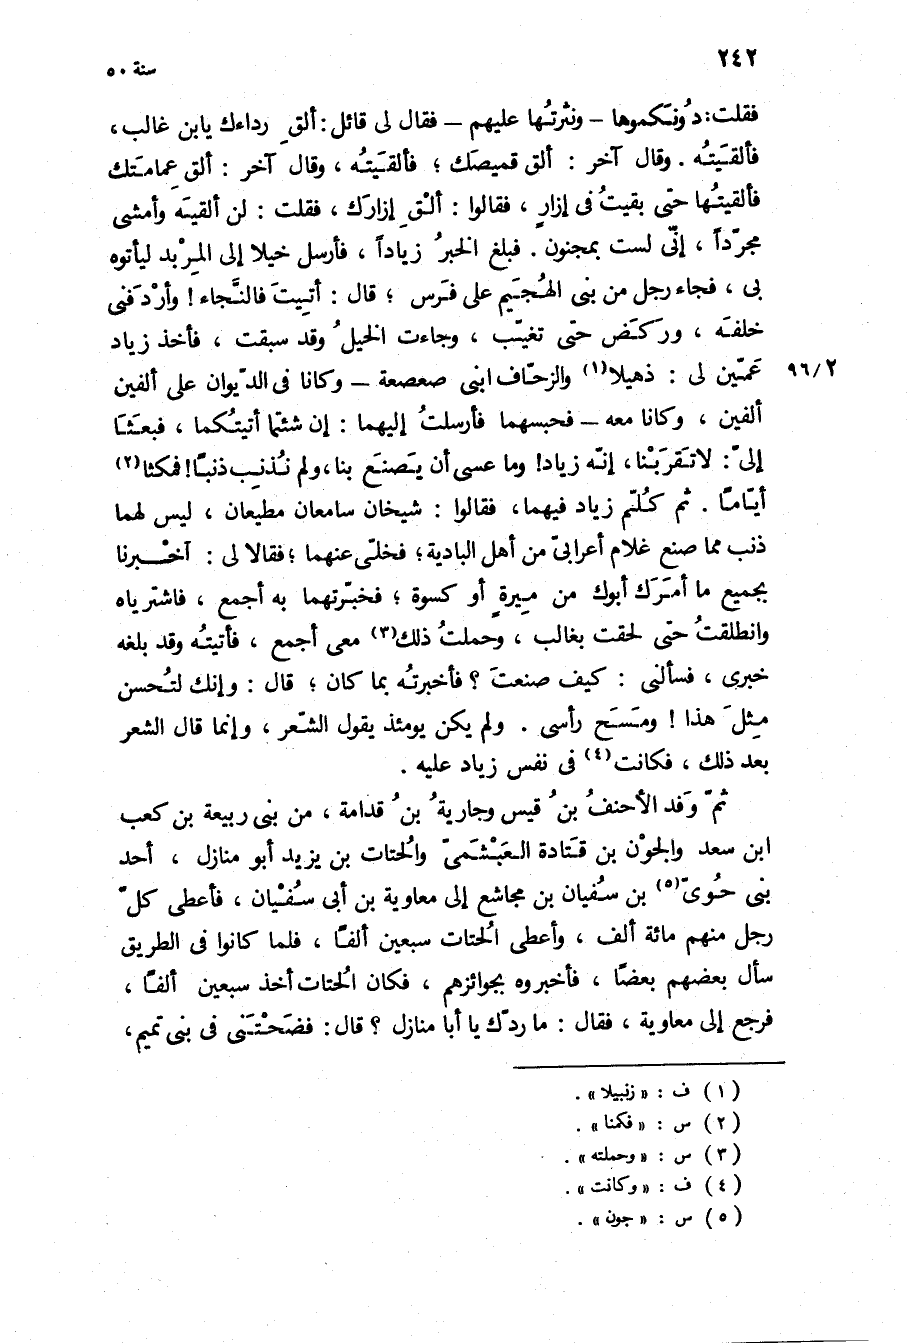 ٢٤٢
سنة ٥٠
فقلت: دُونَكموها – ونثرتُها عليهم – فقال لى قائل: ألقِ رداءك يابن غالب،
فألقَيتُه . وقال آخر : ألق قميصَك ؛ فألقَيتُه ، وقال آخر : ألق عِمامَتك
فألقيتُها حتّى بقيتُ فى إزارٍ ، فقالوا : ألْقِ إزارَك ، فقلت : لن ألقيَه وأمشى
مجرّداً ، إنّى لست بمجنون . فبلغ الخبرُ زياداً ، فأرسل خيلا إلى المِرْبد ليأتوه
بى ، فجاء رجل من بنى الهُجَيم على فَرَس ؛ قال : أتِيتَ فالنَّجاء ! وأرْدَفنى
خلفَه ، ورَكَض حتى تغيّب ، وجاءت الخيلُ وقد سبقت ، فأخذ زياد
٩٦/٢ عَمّين لى : ذهيلا(١) والزحّاف ابنى صعصعة – وكانا فى الدّيوان على ألفين
ألفين ، وكانا معه – فحبسهما فأرسلتُ إليهما : إن شئتما أتيتُكما ، فبعثَا
إلىّ : لا تَقرَبْنا، إنّه زياد! وما عسى أن يَصنَع بنا، ولم نُذنِب ذنبًا! فمكثا(٢)
أيّامًا . ثم كُلّم زياد فيهما، فقالوا : شيخان سامعان مطيعان ، ليس لهما
ذنب مما صنع غلام أعرابىّ من أهل البادية؛ فخلّى عنهما ؛ فقالا لى : أخْبِرنا
بجميع ما أمَرَك أبوك من مِيرةٍ أو كسوة ؛ فخبّرتهما به أجمع ، فاشترياه
وانطلقتُ حتى لحقت بغالب ، وحملتُ ذلك(٣) معى أجمع ، فأتيتُه وقد بلغه
خبرى ، فسألنى : كيف صنعتَ ؟ فأخبرتُه بما كان ؛ قال : وإنك لتُحسن
مِثلَ هذا ! ومَسَح رأسى . ولم يكن يومئذ يقول الشّعر ، وإنما قال الشعر
بعد ذلك ، فكانت(٤) فى نفس زياد عليه .
ثمّ وَفد الأحنفُ بنُ قيس وجاريةُ بنُ قدامة ، من بنى ربيعة بن كعب
ابن سعد والجوْن بن قَتادة العَبْشَمىّ والحُتات بن يزيد أبو منازل ، أحد
بنى حُوىّ(٥) بن سُفيان بن مجاشع إلى معاوية بن أبى سُفْيان ، فأعطى كلّ
رجل منهم مائة ألف ، وأعطى الحُتات سبعين ألفًا ، فلما كانوا فى الطريق
سأل بعضهم بعضًا ، فأخبروه بجوائزهم ، فكان الحُتات أخذ سبعين ألفًا ،
فرجع إلى معاوية ، فقال : ما ردّك يا أبا منازل ؟ قال: فضَحْتَنى فى بنى تميم،
(١) ف : « زنبيلا » .
(٢) س : « فكمنا » .
(٣) س : « وحملته » .
(٤) ف : « وكانت » .
(٥) س : « جون » .